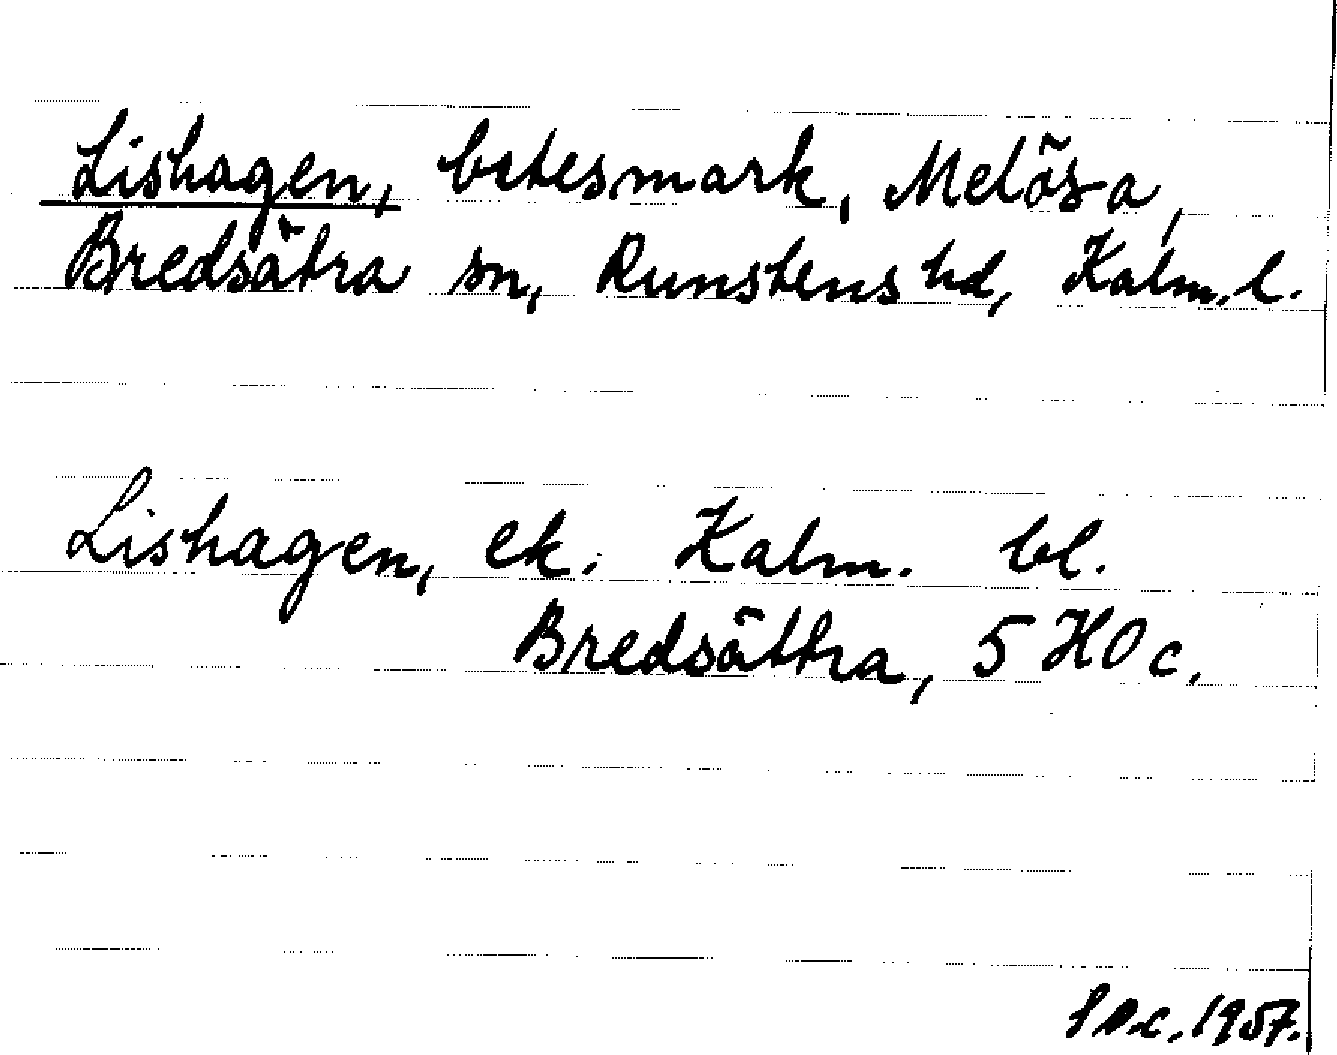 Lishagen, betesmark, Melösa,
Bredsätra sn, Runstens hd, Kalm. l.
Lishagen, ek. Kalm. bl.
Bredsättra, 5 H0 c.
1957.